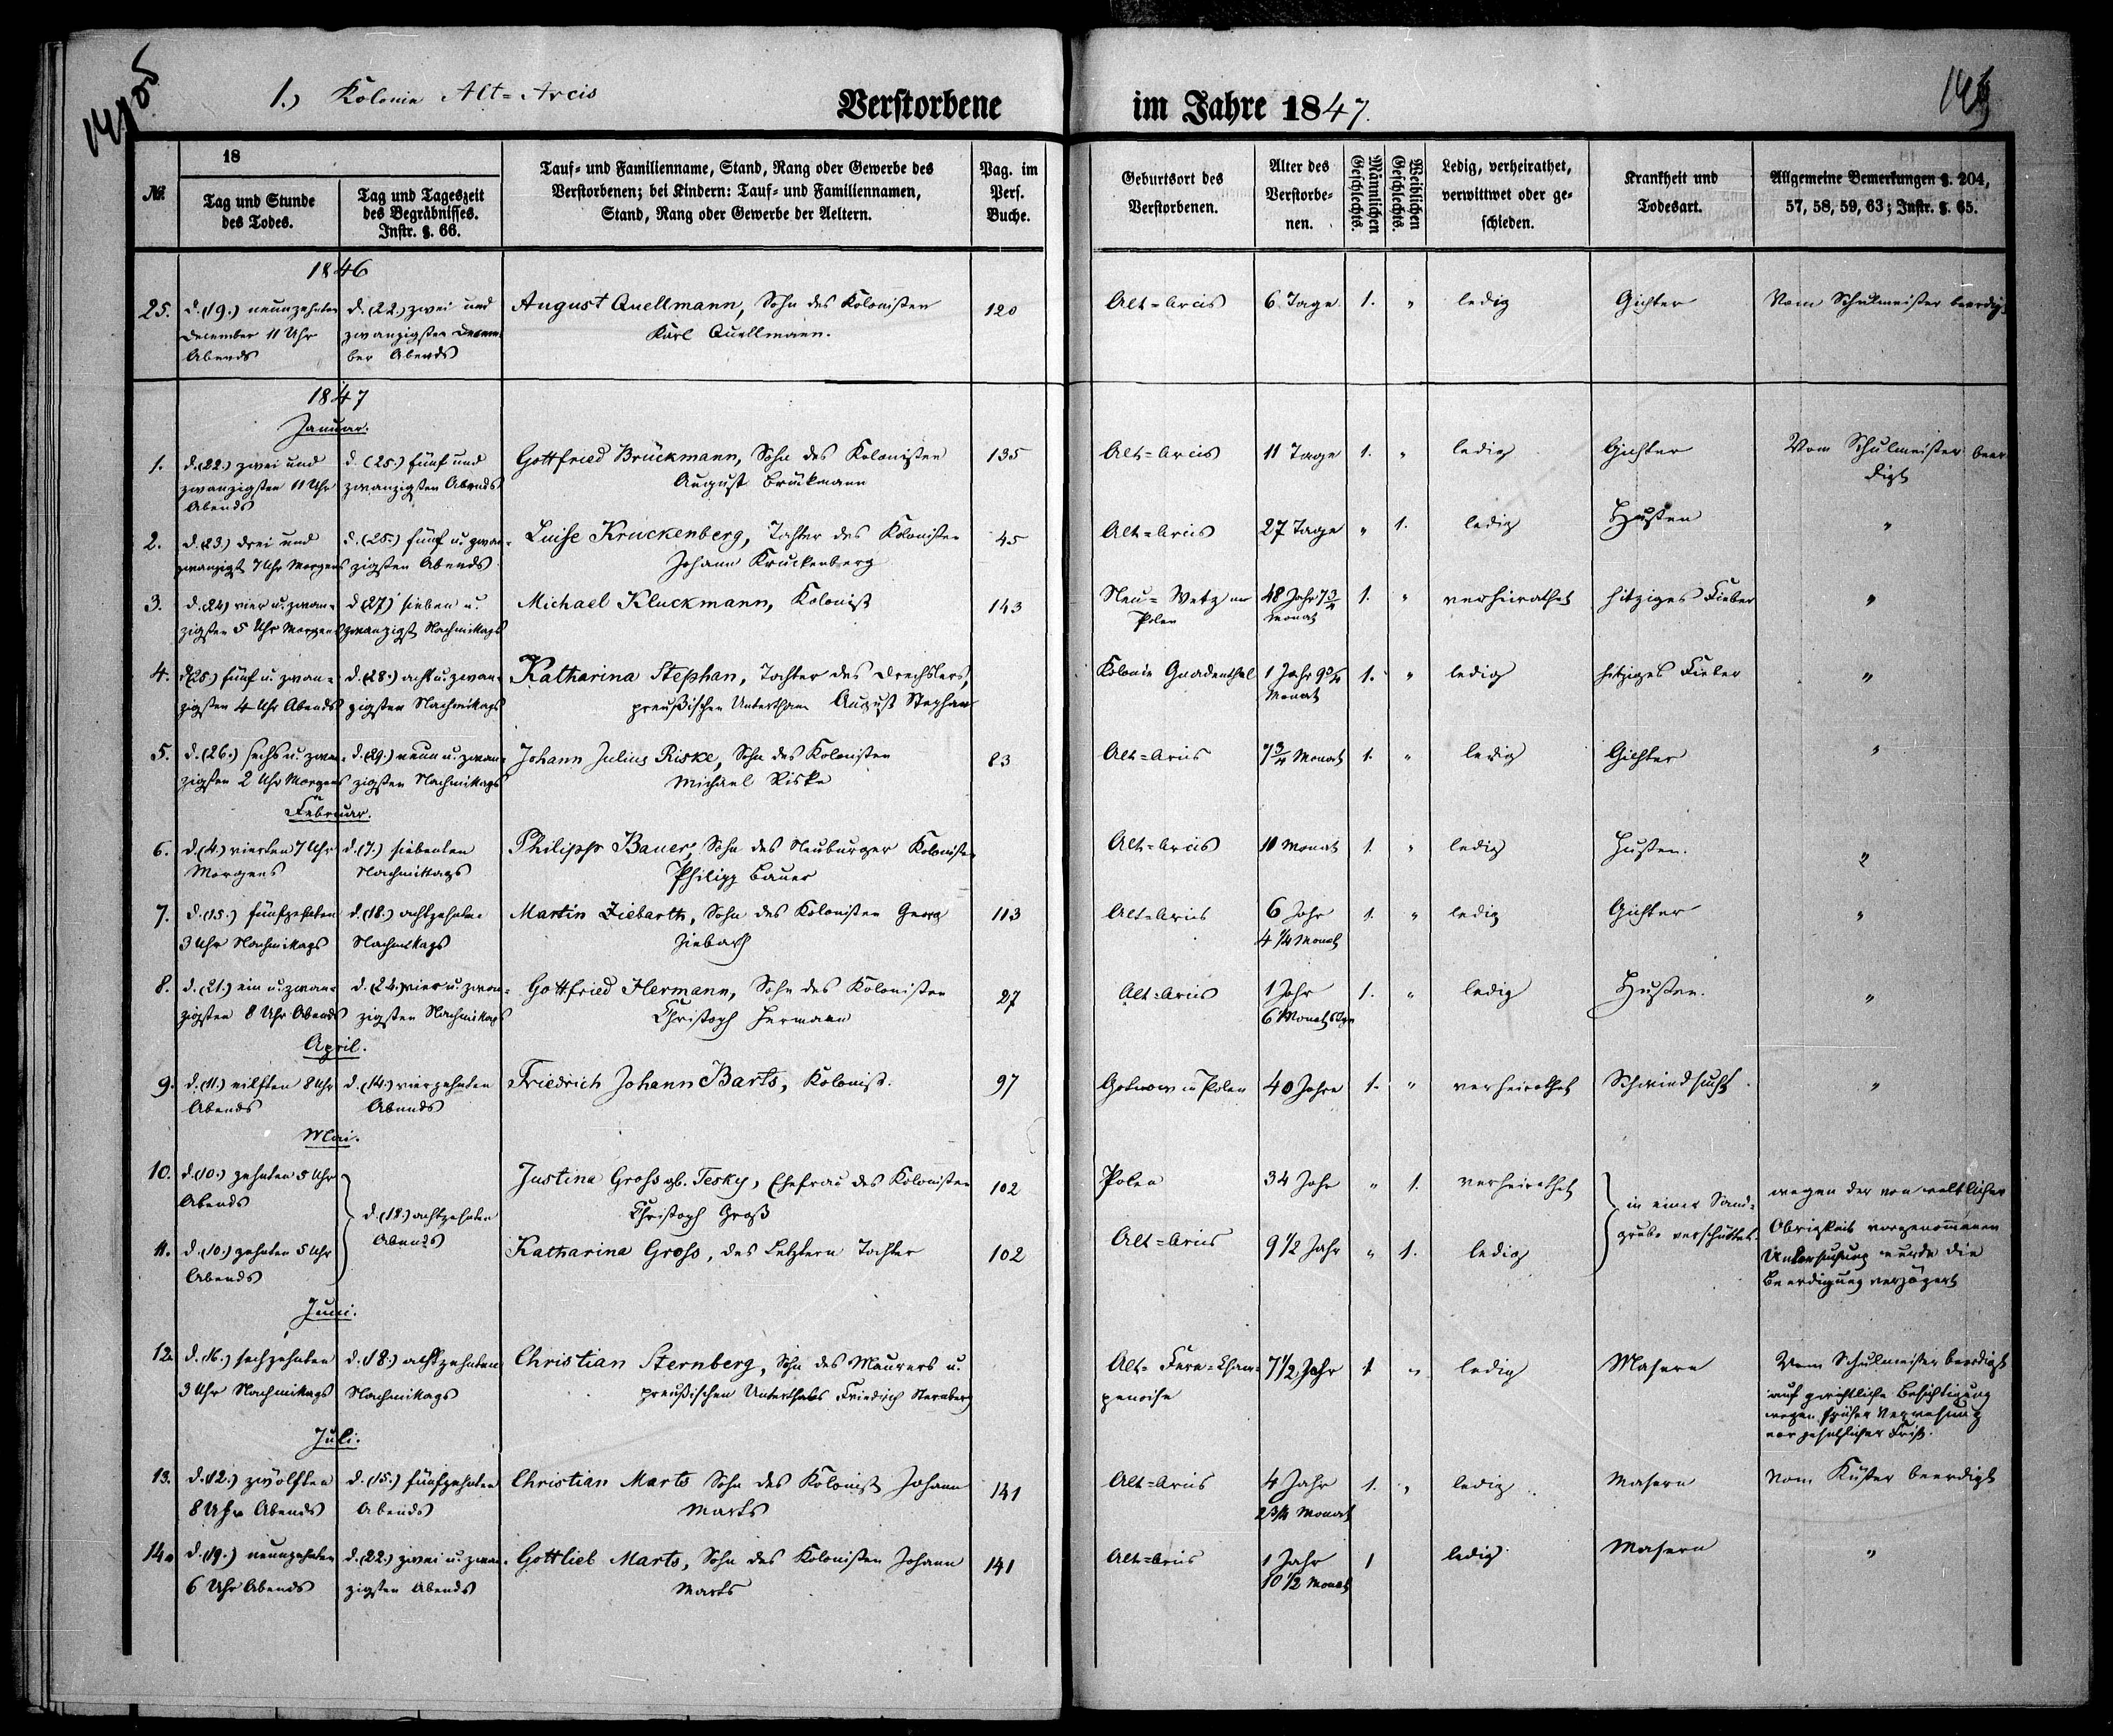 1.) Kolonie Alt-Arcis
Verstorbene im Jahre 1847.
18
No.
Tag und Stunde
des Todes.
Tag und Tageszeit
des Begräbnisses.
Instr. §. 66.
Tauf- und Familienname, Stand, Rang oder Gewerbe des
Verstorbenen; bei Kindern: Tauf- und Familiennamen,
Stand, Rang oder Gewerbe der Aeltern.
Pag. im
Pers.
Buche.
Geburtsort des
Verstorbenen.
Alter des
Verstorbe-
nen.
Männlichen
Geschlechts.
Weiblichen
Geschlechts.
Ledig, verheirathet,
verwittwet oder ge-
schieden.
Krankheit und
Todesart.
Allgemeine Bemerkungen §. 204,
57, 58, 59, 63; Instr. §. 65.
1846
25. d. (19.) neunzehnten d. (22.) zwei und August Quellmann, Sohn des Kolonisten 120 Alt-Arcis 6 Tage 1. " ledig Gichter Vom Schulmeister beerdigt
December 11 Uhr zwanzigsten Decem- Karl Quellmann.
Abends ber Abends
1847
Januar.
1. d. (22.) zwei und d. (25.) fünf und Gottfried Brückmann, Sohn des Kolonisten 135 Alt-Arcis 11 Tage 1. " ledig Gichter Vom Schulmeister beer-
zwanzigsten 11 Uhr zwanzigsten Abends August Brückmann digt
Abends
2. d. (23.) drei und d. (25.) fünf u. zwan- Luise Kruckenberg, Tochter des Kolonisten 45 Alt-Arcis 27 Tage " 1. ledig Husten "
zwanzigst 7 Uhr Morgens zigsten Abends Johann Kruckenberg
3. d. (24) vier u. zwan- d (27) sieben u. Michael Kluckmann, Kolonist 143 Neu- 48 Jahr 7 3/4 1. " verheirathet hitziges Fieber "
zigsten 5 Uhr Morgens zwanzigst Nachmittags Polen Monat
4. d (25) fünf u. zwan- d. (28.) acht u. zwan- Katharina Stephan, Tochter des Drechslers, Kolonie Gnadenthal 1 Jahr 9 3/4 1. " ledig hitziges Fieber "
zigsten 4 Uhr Abends zigsten Nachmittags preußischen Unterthan August Stephan Monat
5. d. (26.) sechs u. zwan- d. (29.) neun u. zwan- Johann Julius Riske, Sohn des Kolonisten 83 Alt-Arcis 7 3/4 Monat 1. " ledig Gichter "
zigsten 2 Uhr Morgens zigsten Nachmittags Michael Riske
Februar.
6. d. (4.) vierten 7 Uhr d. (7.) siebenten Philipp Bauer, Sohn des Neuburger Kolonisten Alt-Arcis 10 Monat 1. " ledig Husten. "
Morgens Nachmittags Philipp Bauer
7. d. (15.) fünfzehnten d. (18.) achtzehnten Martin Ziebarth, Sohn des Kolonisten Georg 113 Alt-Arcis 6 Jahr 1. " ledig Gichter "
3 Uhr Nachmittags Nachmittags Ziebarth 4 1/4 Monat
8. d. (21.) ein u. zwan- d. (24.) vier u. zwan- Gottfried Hermann, Sohn des Kolonisten 27 Alt-Arcis 1 Jahr 1. " ledig Husten. "
zigsten 8 Uhr Abends zigsten Nachmittags Christoph Hermann 6 Monat
April.
9. d. (11.) eilften 8 Uhr d. (14.) vierzehnten Friedrich Johann Barts, Kolonist. 97 in Polen 40 Jahre 1. " verheirathet Schwindsucht. "
Abends Abends
Mai.
10. d. (10.) zehnten 5 Uhr Justina Gross gb. Tesky, Ehefrau des Kolonisten 102 Polen 34 Jahr " 1. verheirathet in einer Sand- wegen der von weltlicher
Abends d. (18.) achtzehnten Christoph Groß grube verschüttet. Obrigkeit vorgenommenen
11. d. (10.) zehnten 5 Uhr Abends Katharina Gross, des Letztern Tochter 102 Alt-Arcis 9 1/2 Jahr " 1. ledig Untersuchung wurde die
Abends Beerdigung verzögert
Juni.
12. d. (16.) sechzehnten d. (18.) achtzehnten Christian Sternberg, Sohn des Maurers u. Alt-Fere-Cham- 7 1/2 Jahr 1 " ledig Masern Vom Schulmeister beerdigt
3 Uhr Nachmittags Nachmittags preußischen Unterthans Friedrich Sternberg penoise auf gerichtliche Besichtigung
wegen früher Verwesung
vor gesetzlicher Frist.
Juli.
13. d. (12.) zwölften d. (15.) fünfzehnten Christian Marts Sohn des Kolonist Johann 141 Alt-Arcis 4 Jahr 1. " ledig Masern Vom Küster beerdigt
8 Uhr Abends Abends Marts 2 3/4 Monat
14. d. (19.) neunzehnten d. (22.) zwei u. zwan- Gottlieb Marts, Sohn des Kolonisten Johann 141 Alt-Arcis 1 Jahr 1 ledig Masern "
6 Uhr Abends zigsten Abends Marts 10 1/2 Monat